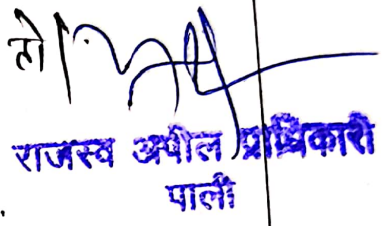 हो।
राजस्व अपील प्राधिकारी
पाली